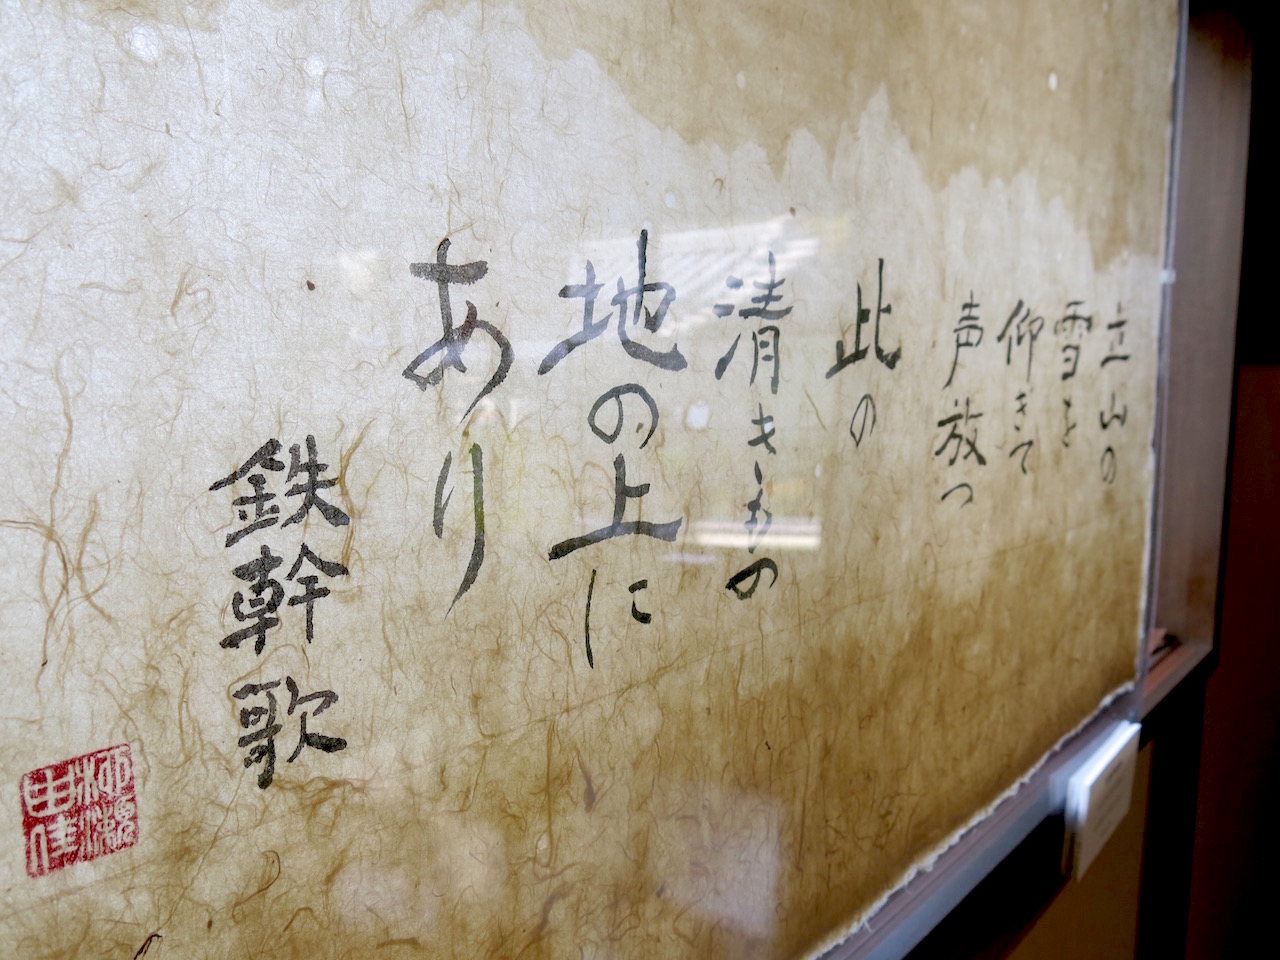 立山の
雪を
仰ぎて
声放つ
此の
清きもの
地の上に
あり
鉄幹歌